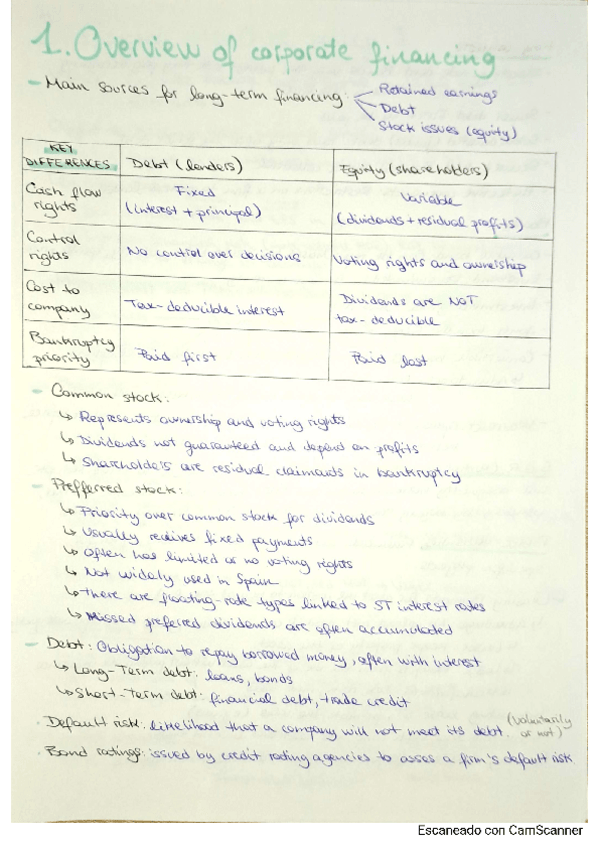 1. Overview of corporate financing
- Main sources for long-term financing: Retained earnings
Debt
Stock issues (equity)
KEY DIFFERENCES Debt (lenders) Equity (shareholders)
Cash flow rights Fixed (interest + principal) Variable (dividends + residual profits)
Control rights No control over decisions Voting rights and ownership
Cost to company Tax-deducible interest Dividends are NOT tax-deducible
Bankruptcy priority Paid first Paid last
- Common stock:
↳ Represents ownership and voting rights
↳ Dividends not guaranteed and depend on profits
↳ Shareholders are residual claimants in bankruptcy
- Prefferred stock:
↳ Priority over common stock for dividends
↳ Usually receives fixed payments
↳ Often has limited or no voting rights
↳ Not widely used in Spain
↳ There are floating-rate types linked to ST interest rates
↳ Missed preferred dividends are often accumulated
- Debt: Obligation to repay borrowed money, often with interest
↳ Long-Term debt: loans, bonds
↳ Short-Term debt: financial debt, trade credit
· Default risk: likelihood that a company will not meet its debt. (voluntarily or not)
· Bond ratings: issued by credit rating agencies to asses a firm's default risk
Escaneado con CamScanner